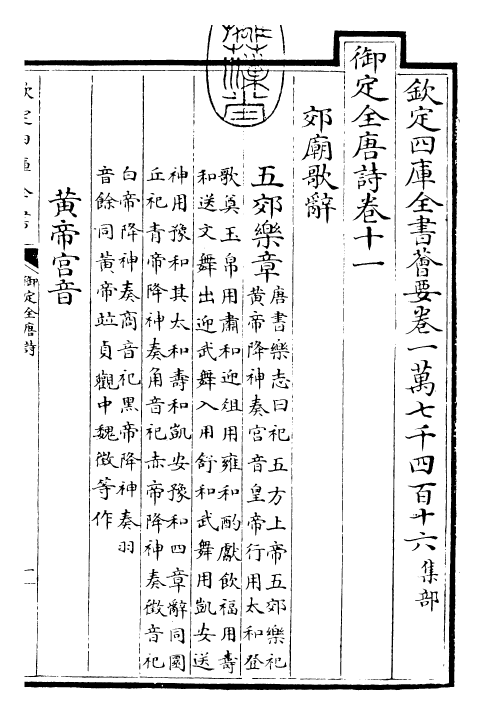 欽定四庫全書薈要卷一萬七千四百十六 集部
御定全唐詩卷十一
郊廟歌辭
五郊樂章
唐書樂志曰祀五方上帝五郊樂祀
黃帝降神奏宮音皇帝行用太和登
歌奠玉帛用肅和迎俎用雍和酌獻飲福用壽
和送文舞出迎武舞入用舒和武舞用凱安送
神用豫和其太和壽和凱安豫和四章辭同圜
丘祀青帝降神奏角音祀赤帝降神奏徵音祀
白帝降神奏商音祀黑帝降神奏羽
音餘同黃帝竝貞觀中魏徵等作
黃帝宮音
欽定四庫全書
御定全唐詩
一